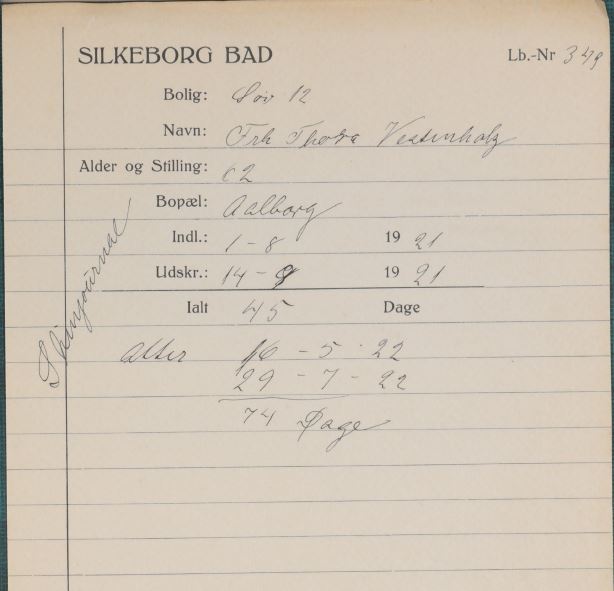 SILKEBORG BAD
Lb.-Nr 349
Bolig: Löv 12
Navn: Frk Thora Vestenholz
Alder og Stilling: 62
Bopæl: Aalborg
Indl.: 1 - 8 1921
Udskr.: 14 - 9 1921
Ialt 45 Dage
atter 16 - 5 - 22
29 - 7 - 22
74 Dage